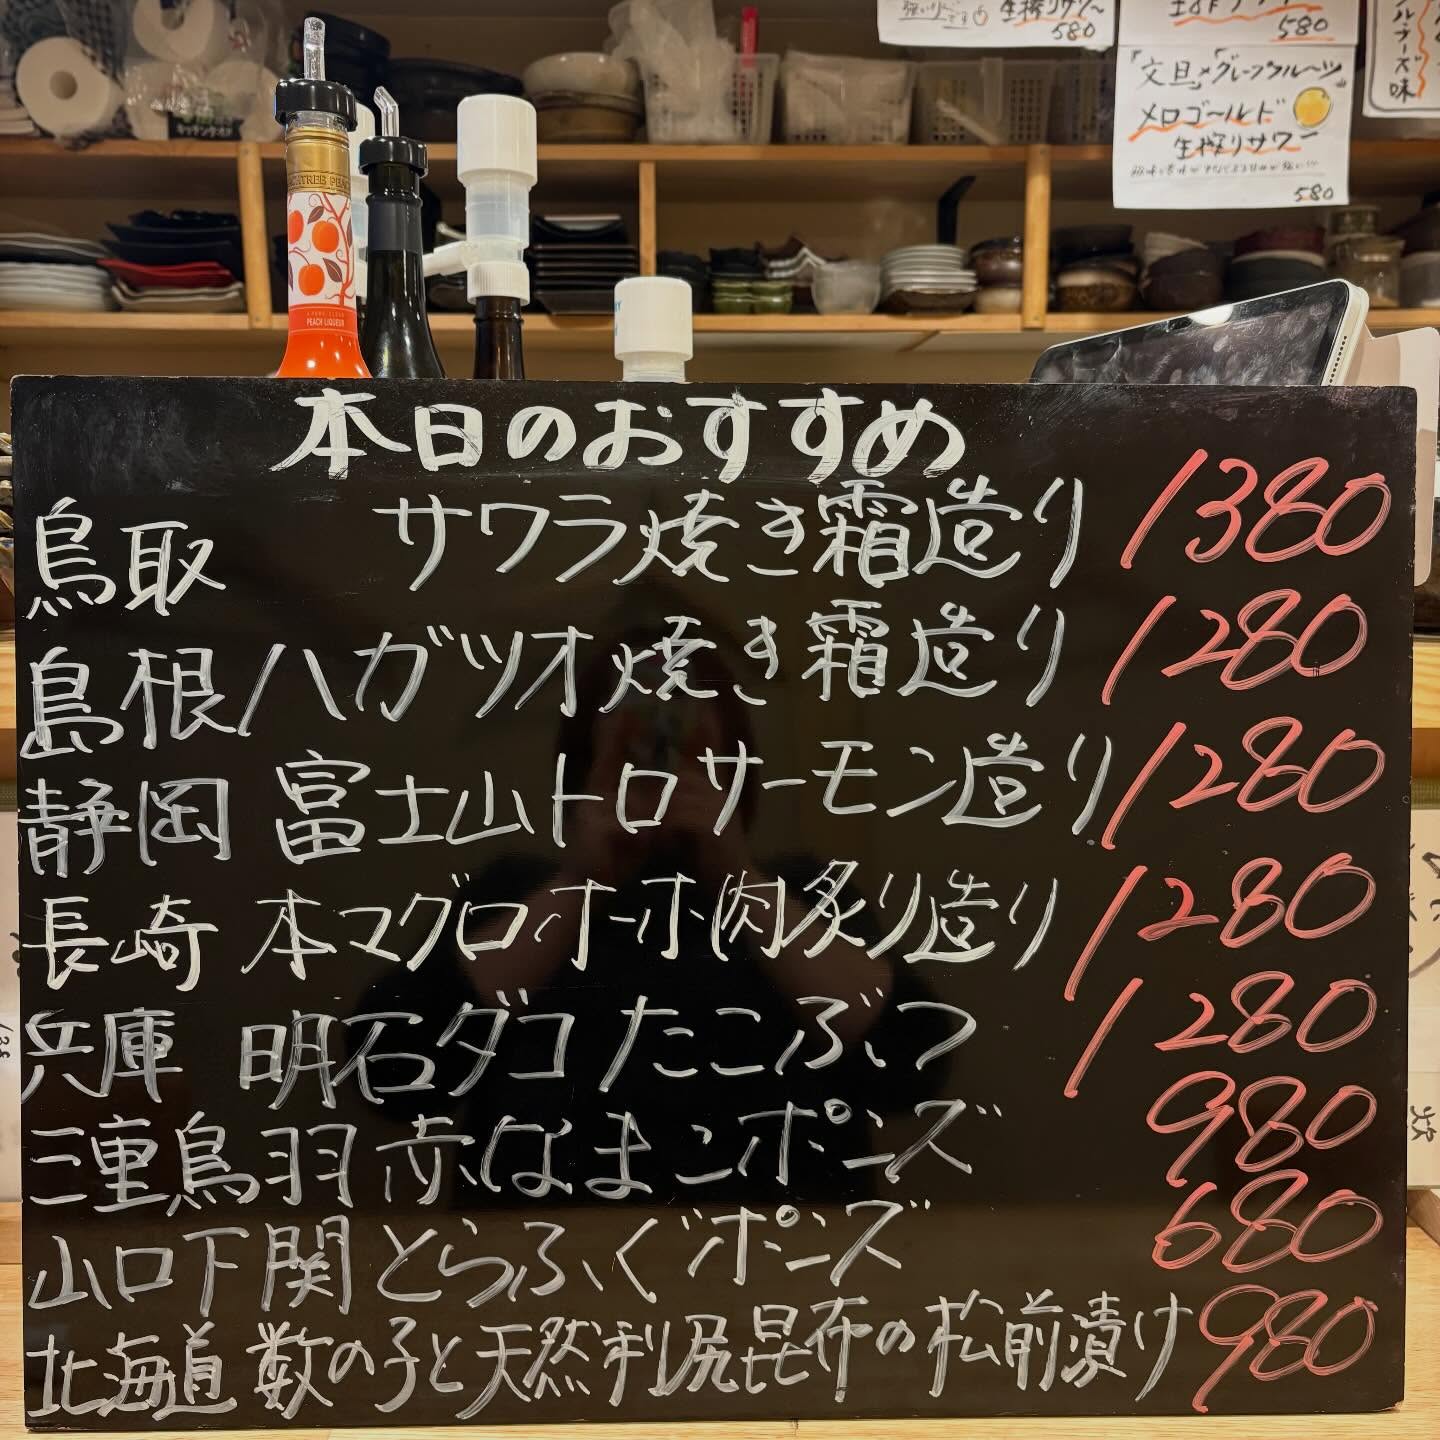 生搾りサワー
580
580
「文旦」×「グレープフルーツ」
メロゴールド
生搾りサワー
580
ズ味
PEACH LIQUEUR
本日のおすすめ
鳥取 サワラ焼き霜造り 1380
島根ハガツオ焼き霜造り 1280
静岡 富士山トロサーモン造り 1280
長崎 本マグロホホ肉炙り造り 1280
兵庫 明石ダコたこぶつ 1280
三重鳥羽赤なまこポンズ 980
山口下関とらふぐポンズ 680
北海道 数の子と天然利尻昆布の松前漬け 980